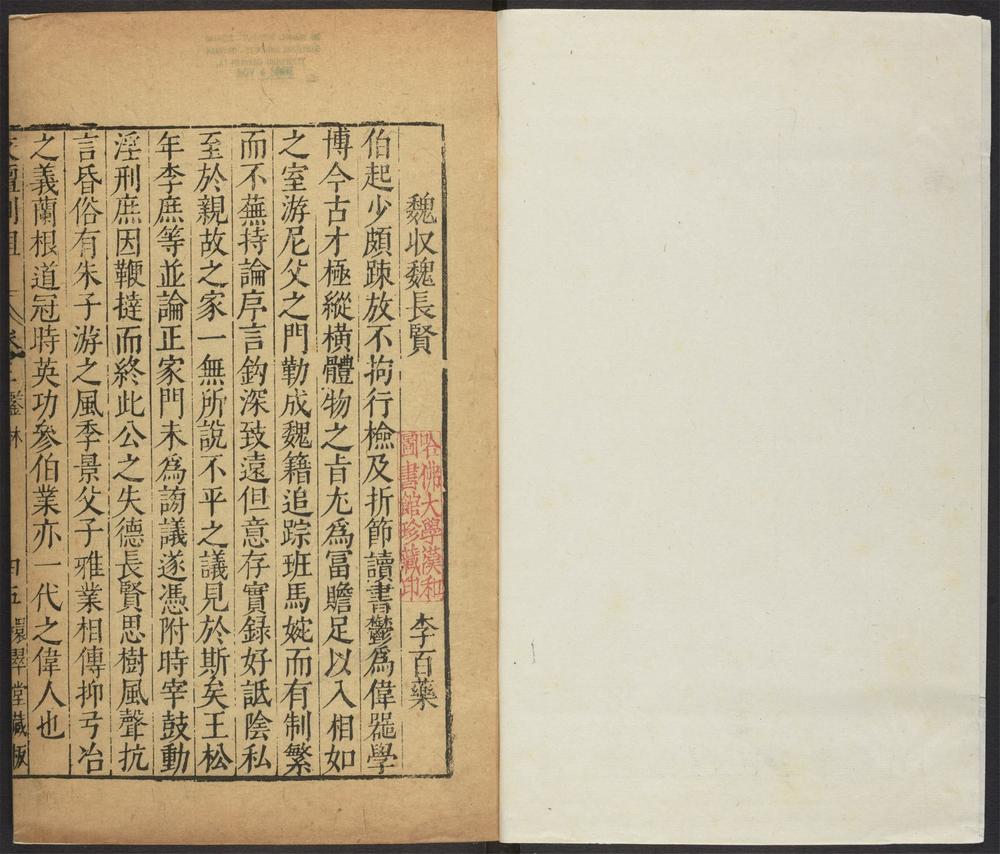 魏收魏長賢 李百藥
伯起少頗踈放不拘行檢及折節讀書欝爲偉器學
博今古才極縱橫體物之旨尢爲冨贍足以入相如
之室游尼父之門勒成魏籍追踪班馬婉而有制繁
而不蕪持論序言鈎深致遠但意存實録好詆陰私
至於親故之家一無所說不平之議見於斯矣王松
年李庶等並論正家門未爲謗議遂憑附時宰鼓動
淫刑庶因鞭撻而終此公之失德長賢思樹風聲抗
言昏俗有朱子游之風季景父子雅業相傳抑弓冶
之義蘭根道冠時英功參伯業亦一代之偉人也
環翠堂藏板
哈佛大學漢和
圖書館珍藏印